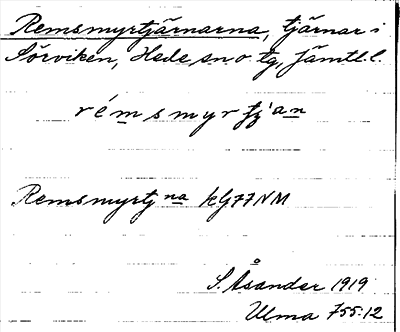 Remsmyrtjärnarna, tjärnar i
Sörviken, Hede sn o tg, Jämtl. l.
rémsmyrtj̀an
Remsmyrtj na kG77NM
S. Åsander 1919
Ulma 755:12